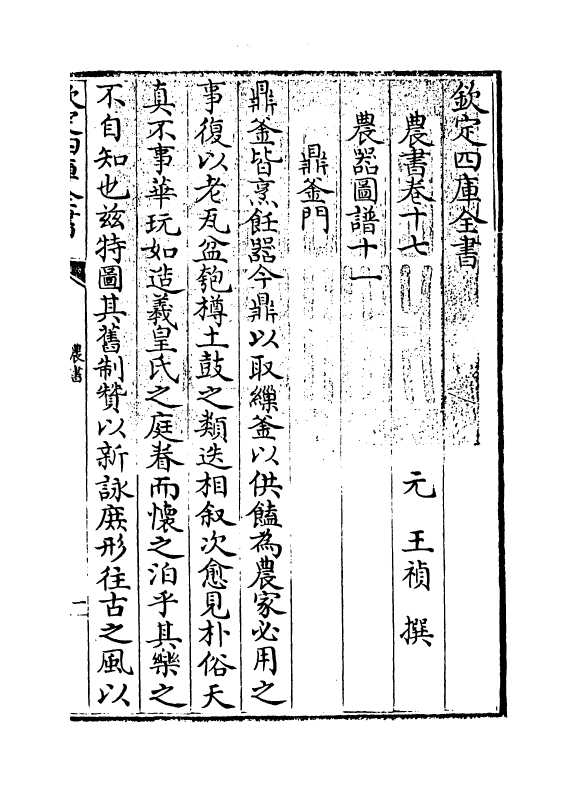 欽定四庫全書
農書卷十七
元 王禎 撰
農器圖譜十一
鼎釜門
鼎釜皆烹飪器今鼎以取繅釜以供饁為農家必用之
事復以老瓦盆匏樽土鼓之類迭相叙次愈見朴俗天
真不事華玩如造羲皇氏之庭眷而懷之泊乎其樂之
不自知也兹特圖其舊制贊以新詠庶形往古之風以
欽定四庫全書
農書
一